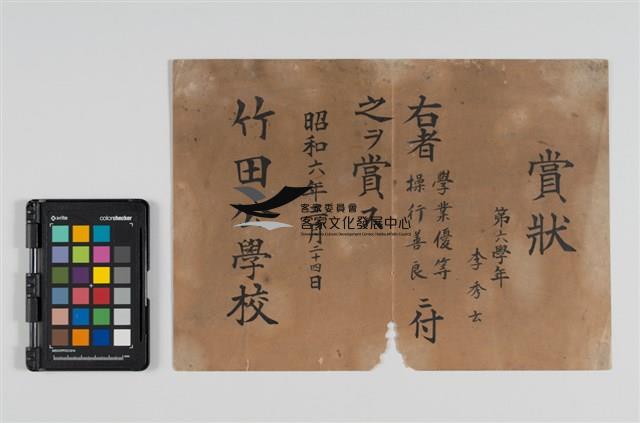 賞狀
第六學年
李秀云
右者 學業優等
操行善良 ニ付
之ヲ賞ス
昭和六年 月二十四日
竹田 學校
客家委員會
客家文化發展中心
x-rite
colorchecker